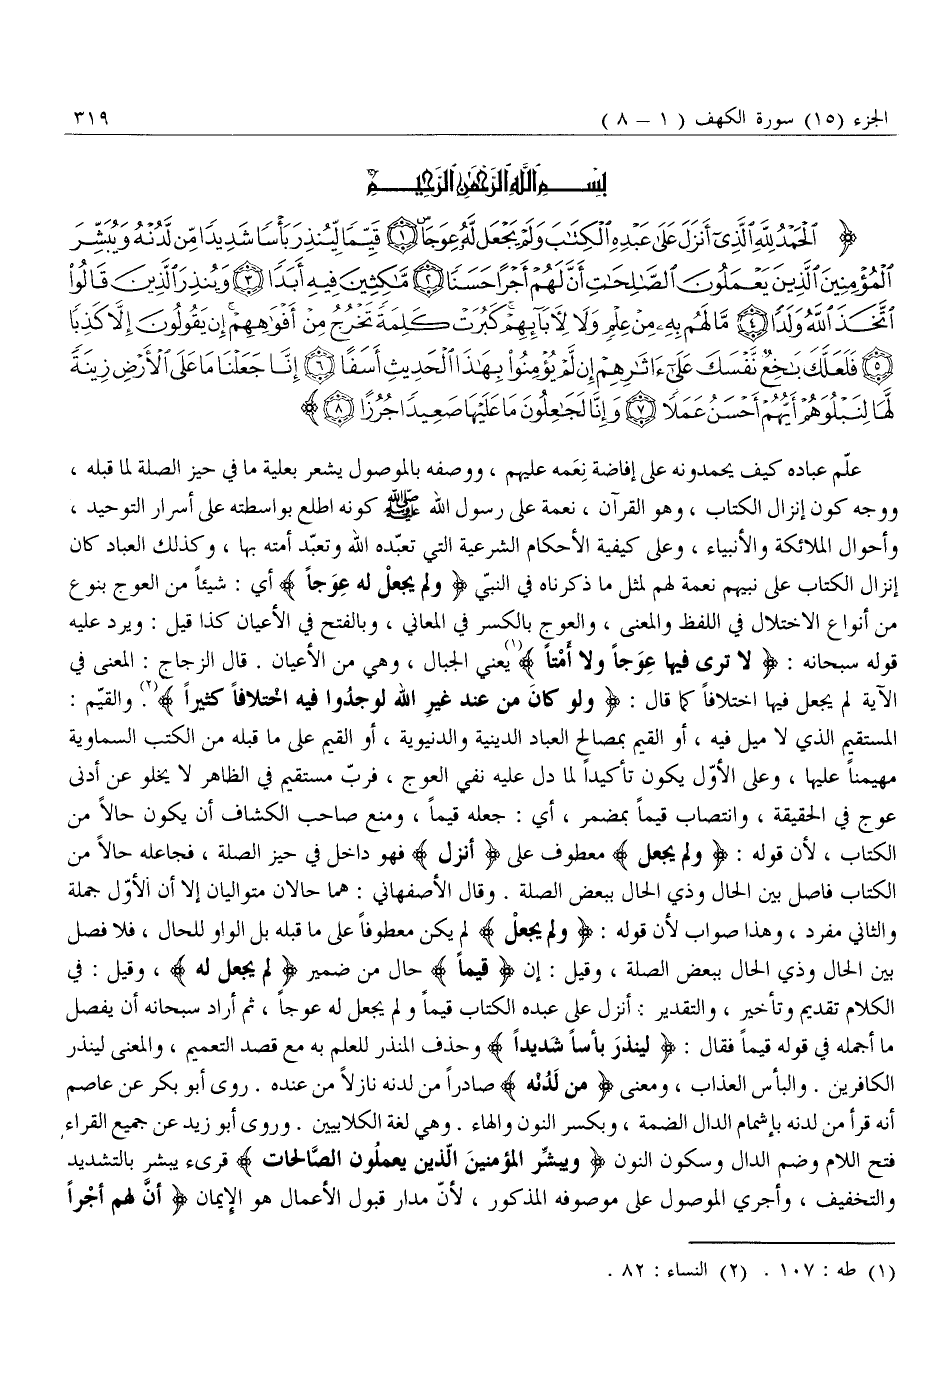 الجزء (١٥) سورة الكهف ( ١ – ٨ ) ٣١٩
بِسْمِ اللَّهِ الرَّحْمَٰنِ الرَّحِيمِ
﴿ ٱلْحَمْدُ لِلَّهِ ٱلَّذِىٓ أَنزَلَ عَلَىٰ عَبْدِهِ ٱلْكِتَٰبَ وَلَمْ يَجْعَل لَّهُۥ عِوَجَاۜ ﴿١﴾ قَيِّمًا لِّيُنذِرَ بَأْسًا شَدِيدًا مِّن لَّدُنْهُ وَيُبَشِّرَ
ٱلْمُؤْمِنِينَ ٱلَّذِينَ يَعْمَلُونَ ٱلصَّٰلِحَٰتِ أَنَّ لَهُمْ أَجْرًا حَسَنًا ﴿٢﴾ مَّٰكِثِينَ فِيهِ أَبَدًا ﴿٣﴾ وَيُنذِرَ ٱلَّذِينَ قَالُوا۟
ٱتَّخَذَ ٱللَّهُ وَلَدًا ﴿٤﴾ مَّا لَهُم بِهِۦ مِنْ عِلْمٍ وَلَا لِءَابَآئِهِمْ ۚ كَبُرَتْ كَلِمَةً تَخْرُجُ مِنْ أَفْوَٰهِهِمْ ۚ إِن يَقُولُونَ إِلَّا كَذِبًا
﴿٥﴾ فَلَعَلَّكَ بَٰخِعٌ نَّفْسَكَ عَلَىٰٓ ءَاثَٰرِهِمْ إِن لَّمْ يُؤْمِنُوا۟ بِهَٰذَا ٱلْحَدِيثِ أَسَفًا ﴿٦﴾ إِنَّا جَعَلْنَا مَا عَلَى ٱلْأَرْضِ زِينَةً
لَّهَا لِنَبْلُوَهُمْ أَيُّهُمْ أَحْسَنُ عَمَلًا ﴿٧﴾ وَإِنَّا لَجَٰعِلُونَ مَا عَلَيْهَا صَعِيدًا جُرُزًا ﴿٨﴾ ﴾
علّم عباده كيف يحمدونه على إفاضة نِعَمه عليهم ، ووصفه بالموصول يشعر بعلية ما في حيز الصلة لما قبله ،
ووجه كون إنزال الكتاب ، وهو القرآن ، نعمة على رسول الله ﷺ كونه اطلع بواسطته على أسرار التوحيد ،
وأحوال الملائكة والأنبياء ، وعلى كيفية الأحكام الشرعية التي تعبّده الله وتعبّد أمته بها ، وكذلك العباد كان
إنزال الكتاب على نبيهم نعمة لهم لمثل ما ذكرناه في النبيّ ﴿ ولم يجعلْ له عِوَجاً ﴾ أي : شيئاً من العوج بنوع
من أنواع الاختلال في اللفظ والمعنى ، والعوج بالكسر في المعاني ، وبالفتح في الأعيان كذا قيل : ويرد عليه
قوله سبحانه : ﴿ لا ترى فيها عِوَجاً ولا أمْتاً ﴾(١) يعني الجبال ، وهي من الأعيان . قال الزجاج : المعنى في
الآية لم يجعل فيها اختلافاً كما قال : ﴿ ولو كانَ من عند غيرِ الله لوجدُوا فيه اخْتلافاً كثيراً ﴾(٢) . والقيّم :
المستقيم الذي لا ميل فيه ، أو القيم بمصالح العباد الدينية والدنيوية ، أو القيم على ما قبله من الكتب السماوية
مهيمناً عليها ، وعلى الأوّل يكون تأكيداً لما دل عليه نفي العوج ، فربّ مستقيم في الظاهر لا يخلو عن أدنى
عوج في الحقيقة ، وانتصاب قيماً بمضمر ، أي : جعله قيماً ، ومنع صاحب الكشاف أن يكون حالاً من
الكتاب ، لأن قوله : ﴿ ولم يجعل ﴾ معطوف على ﴿ أنزل ﴾ فهو داخل في حيز الصلة ، فجاعله حالاً من
الكتاب فاصل بين الحال وذي الحال ببعض الصلة . وقال الأصفهاني : هما حالان متواليان إلا أن الأوّل جملة
والثاني مفرد ، وهذا صواب لأن قوله : ﴿ ولم يجعلْ ﴾ لم يكن معطوفاً على ما قبله بل الواو للحال ، فلا فصل
بين الحال وذي الحال ببعض الصلة ، وقيل : إن ﴿ قيماً ﴾ حال من ضمير ﴿ لم يجعل له ﴾ ، وقيل : في
الكلام تقديم وتأخير ، والتقدير : أنزل على عبده الكتاب قيماً ولم يجعل له عوجاً ، ثم أراد سبحانه أن يفصل
ما أجمله في قوله قيماً فقال : ﴿ لينذرَ بأساً شديداً ﴾ وحذف المنذر للعلم به مع قصد التعميم ، والمعنى لينذر
الكافرين . والبأس العذاب ، ومعنى ﴿ من لَدُنْه ﴾ صادراً من لدنه نازلاً من عنده . روى أبو بكر عن عاصم
أنه قرأ من لدنه بإشمام الدال الضمة ، وبكسر النون والهاء . وهي لغة الكلابيين . وروى أبو زيد عن جميع القراء
فتح اللام وضم الدال وسكون النون ﴿ ويبشّر المؤمنينَ الّذين يعملُون الصَّالحات ﴾ قرىء يبشر بالتشديد
والتخفيف ، وأجري الموصول على موصوفه المذكور ، لأنّ مدار قبول الأعمال هو الإِيمان ﴿ أنَّ لهم أجْراً
(١) طه : ١٠٧ . (٢) النساء : ٨٢ .